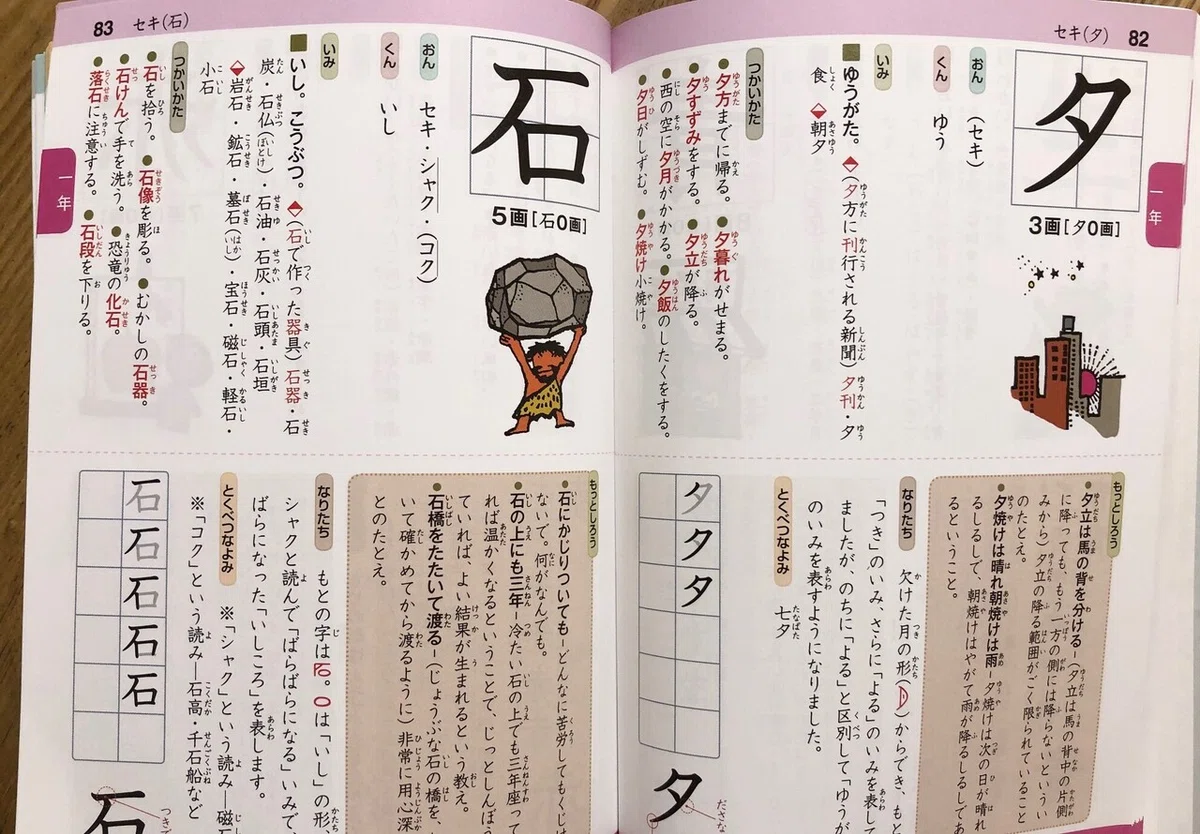 セキ(夕) 82
一年
夕
3画[夕0画]
おん (セキ)
くん ゆう
いみ
■ゆうがた。◆(夕方に刊行される新聞)夕刊・夕
食 ◆朝夕
つかいかた
●夕方までに帰る。●夕暮れがせまる。
●夕すずみをする。●夕立が降る。
●西の空に夕月がかかる。●夕飯のしたくをする。
●夕日がしずむ。●夕焼け小焼け。
もっとしろう
●夕立は馬の背を分ける-(夕立は馬の背中の片側
に降っても、もう一方の側には降らないという い
みから)夕立の降る範囲がごく限られていること
のたとえ。
●夕焼けは晴れ朝焼けは雨-夕焼けは次の日が晴れ
るしるしで、朝焼けはやがて雨が降るしるしであ
るということ。
なりたち
欠けた月の形( )からでき、もと
「つき」のいみ、さらに「よる」のいみを表して
ましたが、のちに「よる」と区別して「ゆうが
のいみを表すようになりました。
とくべつなよみ 七夕
夕夕夕
夕
83 セキ(石)
一年
石
5画[石0画]
おん セキ・シャク・(コク)
くん いし
いみ
■いし。こうぶつ。◆(石で作った器具)石器・石
炭・石仏(ぼとけ)・石油・石灰・石頭・石垣
◆岩石・鉱石・墓石(いし)・宝石・磁石・軽石・
小石
つかいかた
●石を拾う。●石像を彫る。●むかしの石器。
●石けんで手を洗う。●恐竜の化石。
●落石に注意する。●石段を下りる。
もっとしろう
●石にかじりついても-どんなに苦労してもくじけ
ないで。何がなんでも。
●石の上にも三年-冷たい石の上でも三年座って
れば温かくなるということで、じっとしんぼう
ていれば、よい結果が生まれるという教え。
●石橋をたたいて渡る-(じょうぶな石の橋を、
いて確かめてから渡るように)非常に用心深
とのたとえ。
なりたち
もとの字は 。 は「いし」の形、
シャクと読んで「ばらばらになる」いみで、
ばらになった「いしころ」を表します。
とくべつなよみ
※「シャク」という読み―磁石
※「コク」という読み―石高・千石船など
石石石石石
石